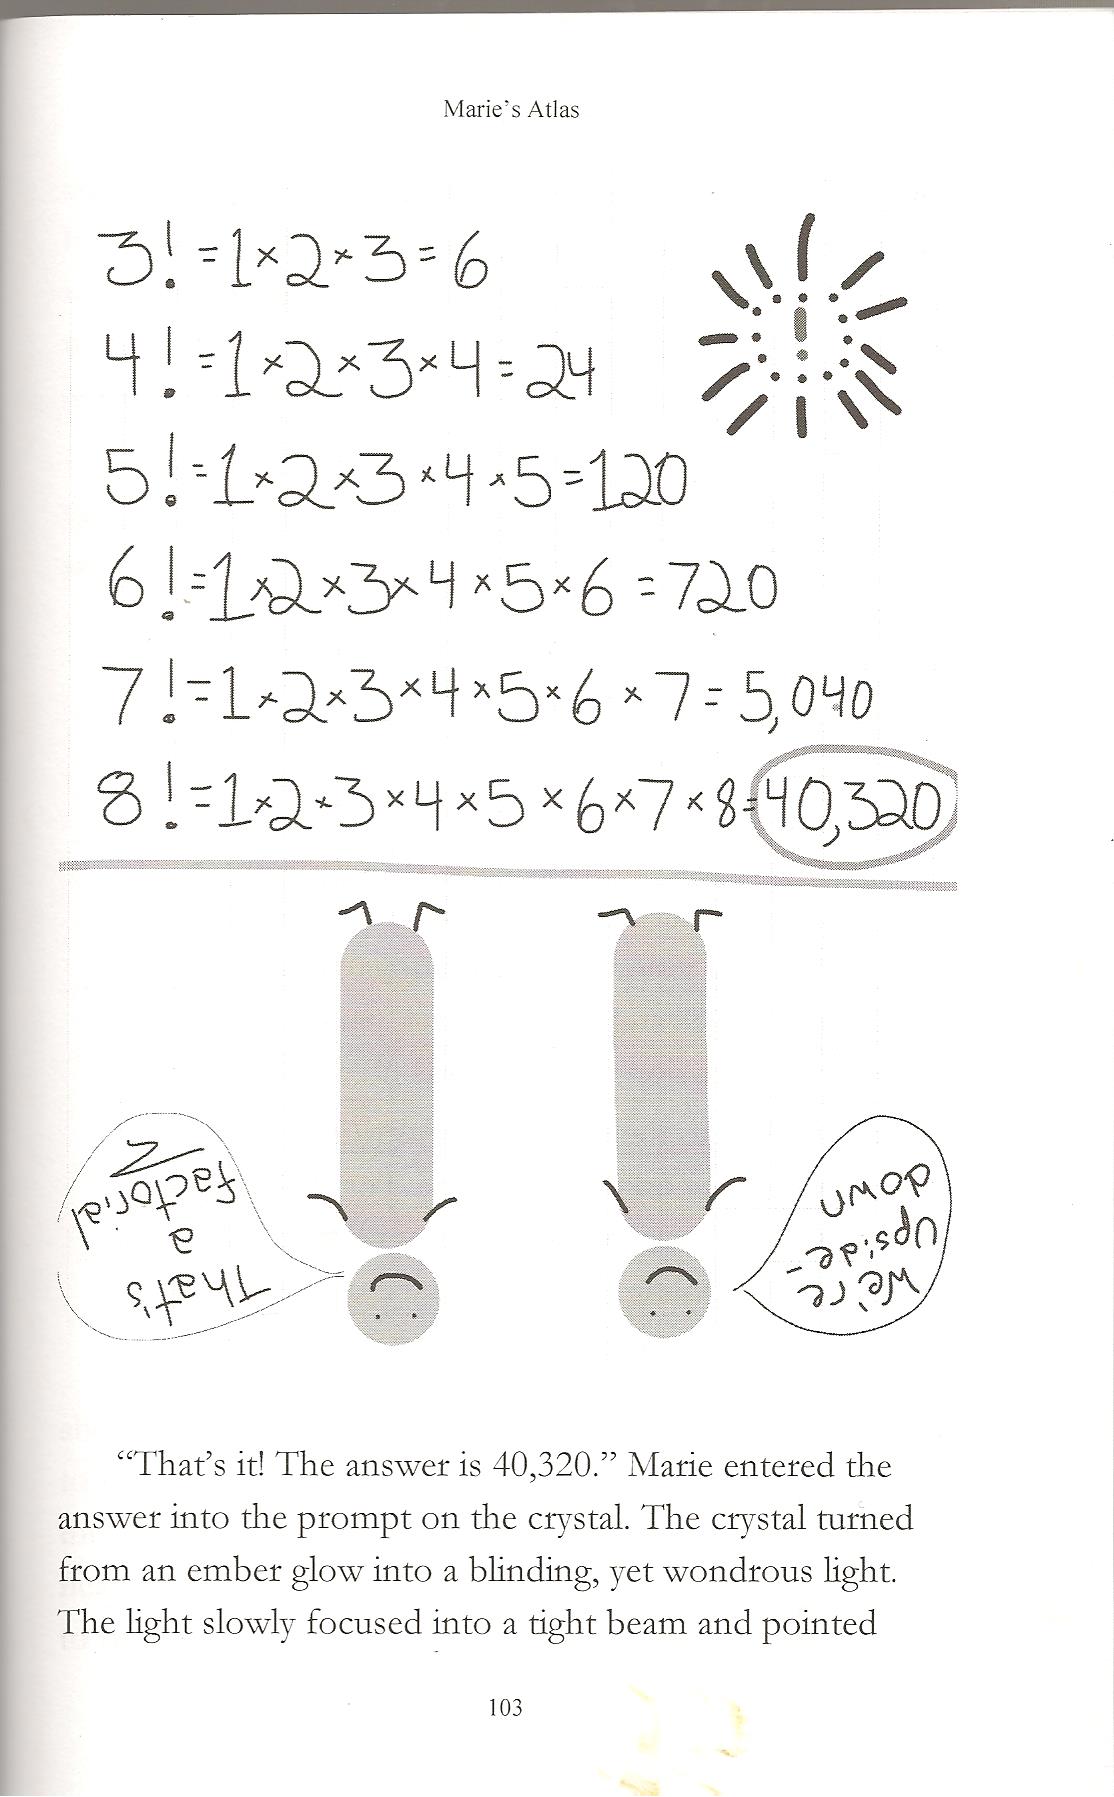 Marie's Atlas
3! = 1 × 2 × 3 = 6
4! = 1 × 2 × 3 × 4 = 24
5! = 1 × 2 × 3 × 4 × 5 = 120
6! = 1 × 2 × 3 × 4 × 5 × 6 = 720
7! = 1 × 2 × 3 × 4 × 5 × 6 × 7 = 5,040
8! = 1 × 2 × 3 × 4 × 5 × 6 × 7 × 8 = 40,320
!
That's
a
factorial
We're
upside-
down
“That’s it! The answer is 40,320.” Marie entered the
answer into the prompt on the crystal. The crystal turned
from an ember glow into a blinding, yet wondrous light.
The light slowly focused into a tight beam and pointed
103